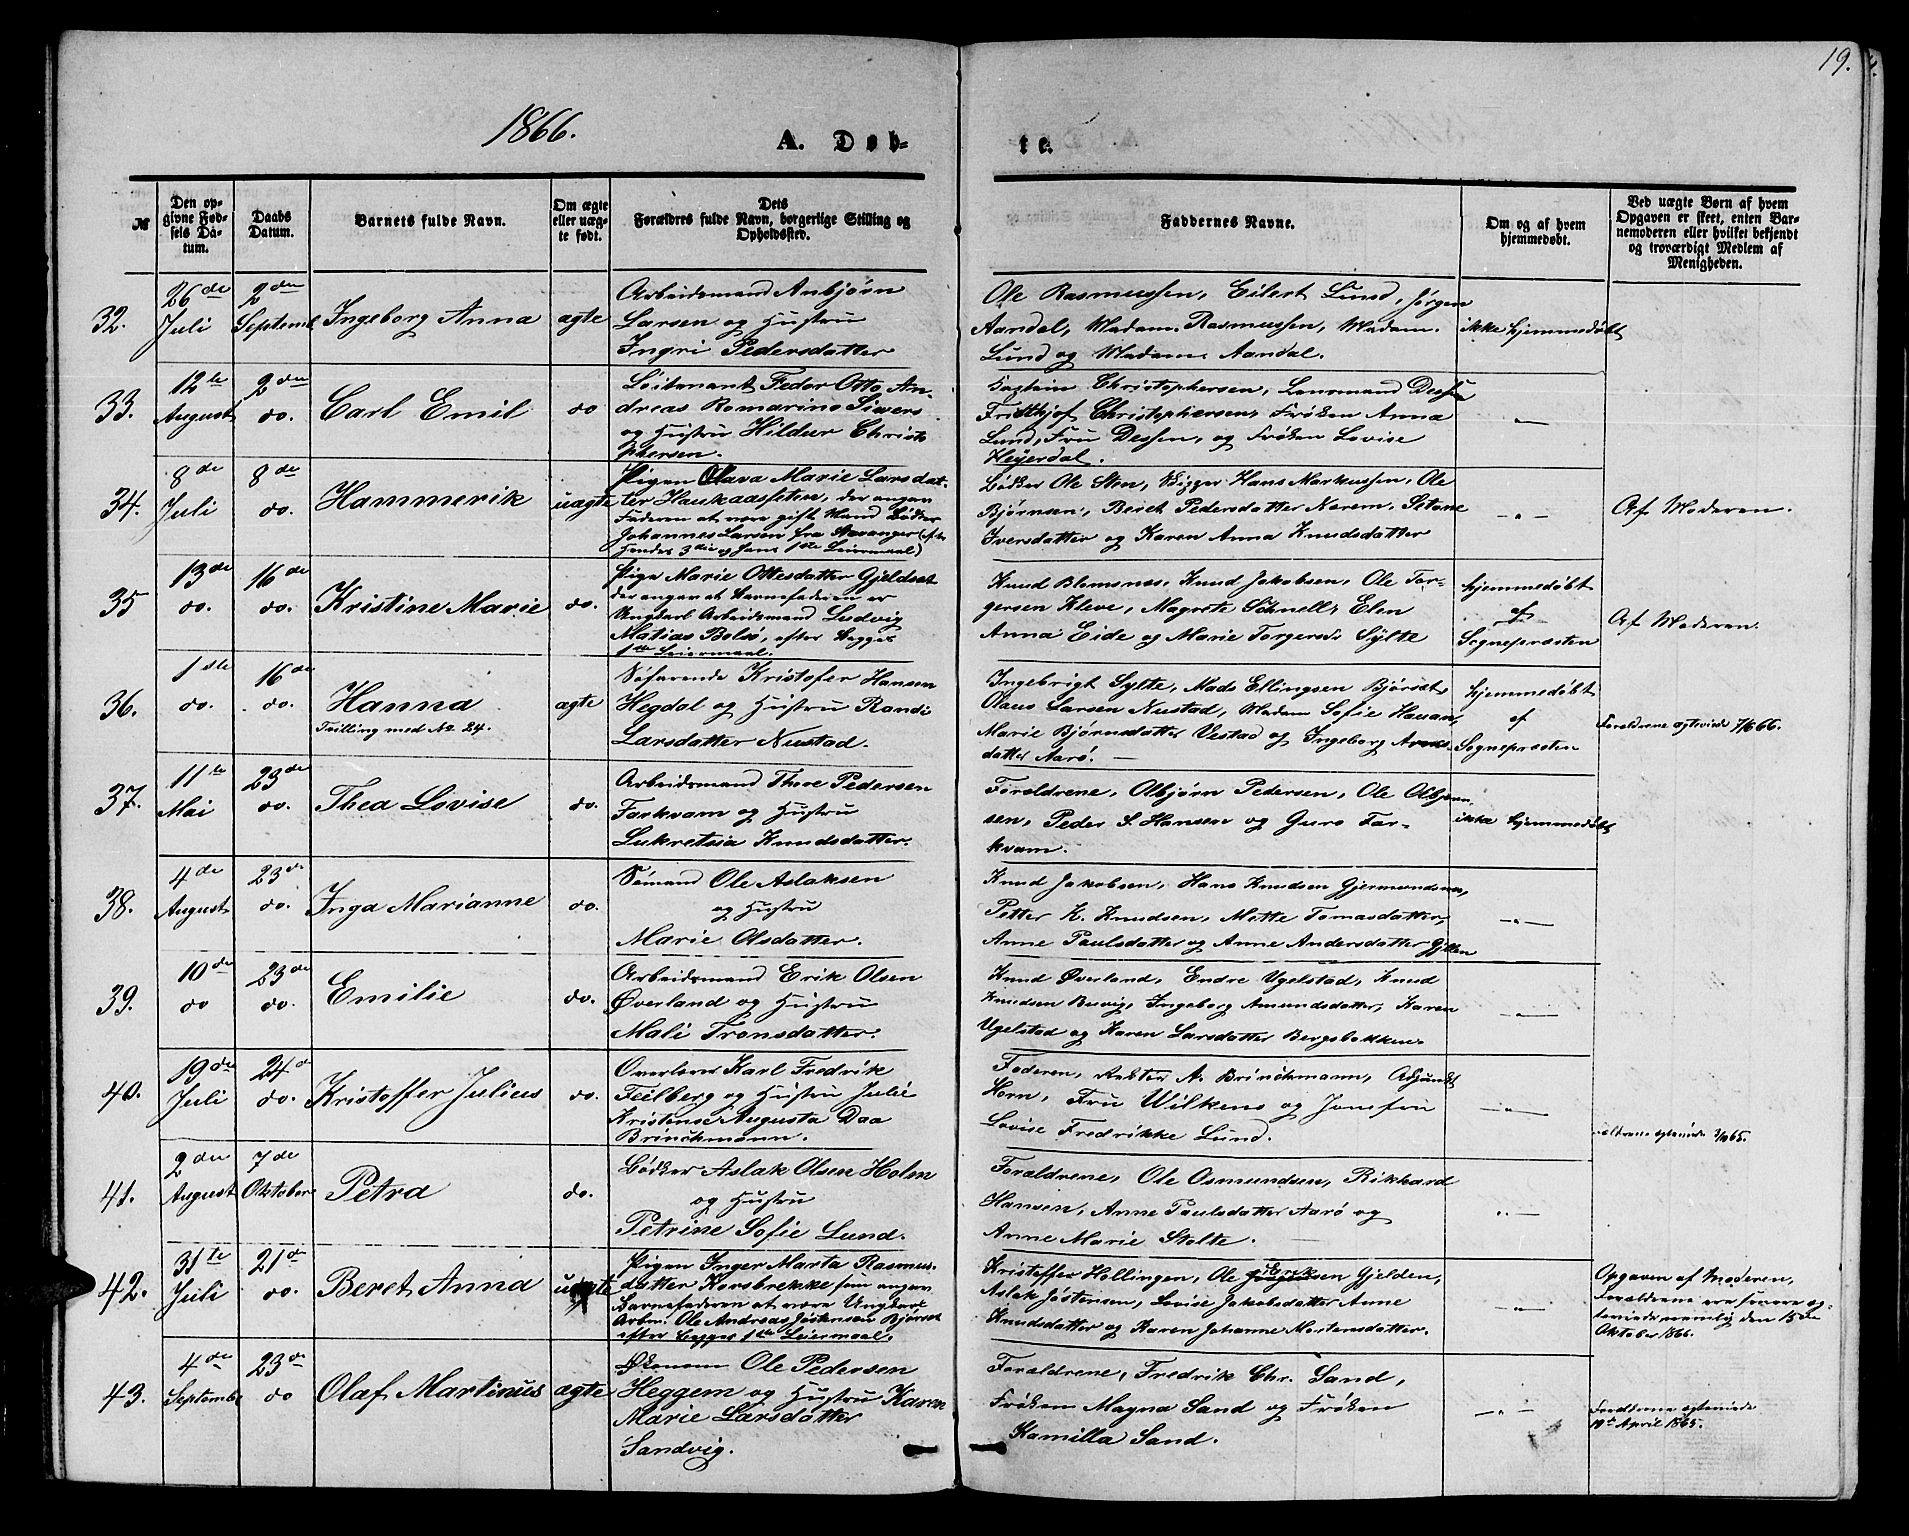 19.
1866.
A. Døb-
te.
№
Den op-
givne Fød-
sels Da-
tum.
Daabs
Datum.
Barnets fulde Navn.
Om ægte
eller uæg-
te født.
Dets
Forældres fulde Navn, borgerlige Stilling og
Opholdssted.
Faddernes Navne.
Om og af hvem
hjemmedøbt.
Ved uægte Børn af hvem
Opgaven er skeet, enten Bar-
nemoderen eller hvilket bekjendt
og troværdigt Medlem af
Menigheden.
32.
26de
Juli
2den
Septembr
Ingeborg Anna
ægte
Arbeidsmand Anbjørn
Larsen og Hustru
Ingri Pedersdatter
Ole Rasmussen, Eilert Lund, Jørgen
Aandal, Madam Rasmussen, Madam
Lund og Madam Aandal.
ikke hjemmedøbt
33.
12te
August
2den
do.
Carl Emil
do
Løitenant Fedor Otto An-
dreas Romarino Siwers
og Hustru Hildur Christo
phersen.
Kaptein Christophersen, Lensmand Dessen
Fridthjof Christophersen, Frøken Anna
Lund, Fru Dessen, og Frøken Lovise
Heyerdal.
—"—
34.
8de
Juli
8de
do.
Hammerik
uægte
Pigen Olava Marie Larsdat-
ter Haukaasseten, der angav
Faderen at være gift Mand Bødker
Johannes Larsen fra Stavanger (efter
Hendes 3die og Hans 1ste Leiermaal)
Bødker Ole Sten, Bygger Hans Markussen, Ole
Bjørnsen, Beret Pedersdatter Norem, Setane
Iversdatter og Karen Anna Knudsdatter
—"—
Af Moderen.
35
13de
do.
16de
do.
Kristine Marie
do.
Pige Marie Ottesdatter Gjeldset
der angav at Barnefaderen er
Ungkarl Arbeidsmand Ludvig
Matias Bolsø, efter begges
1ste Leiermaal.
Knud Blomsnes, Knud Jakobsen, Ole Tor-
gersen Kleve, Magrete Schnell, Elen
Anna Eide og Marie Torgersd. Sylte
hjemmedøbt
af
Sognepræsten
Af Moderen.
36.
1ste
do.
16de
do.
Hanna
Tvilling med No 24.
ægte
Søfarende Kristofer Hansen
Hegdal og Hustru Randi
Larsdatter Nustad.
Ingebrigt Sylte, Mads Ellingsen Bjørset,
Olaus Larsen Nustad, Madam Sofie Hauan,
Marie Bjørnsdatter Vestad og Ingeborg Arnes-
datter Aarø.
hjemmedøbt
af
Sognepræsten
Forældrene ægteviede 7/6 66.
37.
11te
Mai
23de
do.
Thea Lovise
do.
Arbeidsmand Thore Pedersen
Farkvam og Hustru
Lukretsia Knudsdatter.
Forældrene, Olbjørn Pedersen, Ole Olbjørn-
sen, Peder S. Hansen og Guro Far-
kvam.
ikke hjemmedøbt
38.
4de
August
23de
do.
Inga Marianne
do.
Sømand Ole Aslaksen
og Hustru
Marie Olsdatter.
Knud Jakobsen, Hans Knudsen Gjermundsnes,
Petter K. Knudsen, Mette Tomasdatter,
Anne Paulsdatter og Anne Andersdatter
—"—
39.
10de
do
23de
do.
Emilie
do.
Arbeidsmand Erik Olsen
Øverland og Hustru
Mali Tronsdatter.
Knud Øverland, Endre Ugelstad, Knud
Knudsen Rusvig, Ingeborg Amundsdatter, Karen
Ugelstad og Karen Larsdatter Bergsbakken.
—"—
40.
19de
Juli
24de
do.
Kristoffer Julius
do.
Overlærer Karl Fredrik
Feilberg og Hustru Julie
Kristense Augusta Daa
Brinchmann.
Faderen, Rektor A. Brinchmann, Adjunkt
Horn, Fru Wilkens og Jomfru
Lovise Fredrikke Lund.
—"—
41.
2den
August
7de
Oktober
Petra
do.
Bødker Aslak Olsen Holm
og Hustru
Petrine Sofie Lund.
Forældrene, Ole Osmundsen, Rikhard
Hansen, Anne Paulsdatter Aarø og
Anne Marie Stolte.
42.
31te
Juli
21de
do.
Beret Anna
uægte
Pigen Inger Marta Rasmus-
datter Korsbrekke som angav
Barnefaderen at være Ungkarl
Arbm. Ole Andreas Jøstensen Bjørset
efter begges 1ste Leiermaal.
Kristoffer Hollingen, Ole Eriksen Gjelden,
Aslak Jøstensen, Lovise Jakobsdatter Anne
Knudsdatter og Karen Johanne Mortensdatter.
—"—
Opgaven af Moderen,
Forældrene ere senere æg-
teviede nemlig den 15de
Oktober 1866.
43.
4de
Septembr
23de
do
Olaf Martinus
ægte
Økonom Ole Pedersen
Heggem og Hustru Karen
Marie Larsdatter
Sandvig.
Forældrene, Fredrik Chr. Sand,
Frøken Magna Sand og Frøken
Kamilla Sand.
—"—
Forældrene ægteviede
19de April 1865.